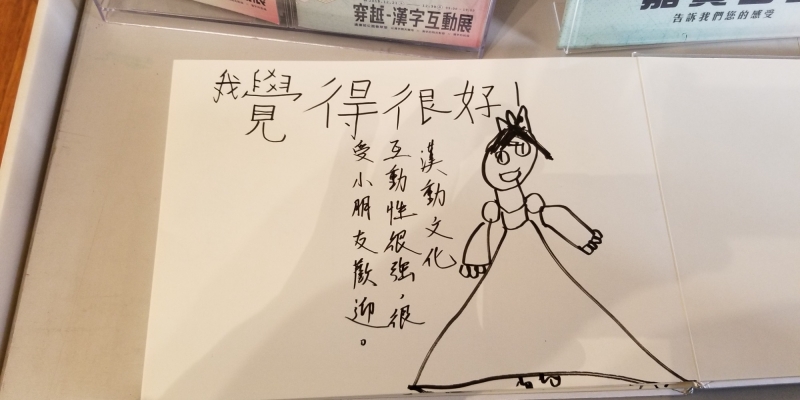 穿越-漢字互動展
告訴我們您的感受
我覺得很好！
漢動文化
互動性很強，很
受小朋友歡迎。